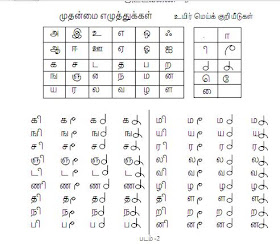 முதன்மை எழுத்துக்கள் உயிர் மெய்க் குறியீடுகள்
அ இ உ எ ஒ ஃ . ா
ஆ ஈ ஊ ஏ ஓ ஐ ி ீ
க ச ட த ப ற ு ூ
ங ஞ ண ந ம ன ெ ே
ய ர ல வ ழ ள ை
கி கீ கு கூ மி மீ மு மூ
ஙி ஙீ ஙு ஙூ யி யீ யு யூ
சி சீ சு சூ ரி ரீ ரு ரூ
ஞி ஞீ ஞு ஞூ லி லீ லு லூ
டி டீ டு டூ வி வீ வு வூ
ணி ணீ ணு ணூ ழி ழீ ழு ழூ
தி தீ து தூ ளி ளீ ளு ளூ
நி நீ நு நூ றி றீ று றூ
பி பீ பு பூ னி னீ னு னூ
படம்-2